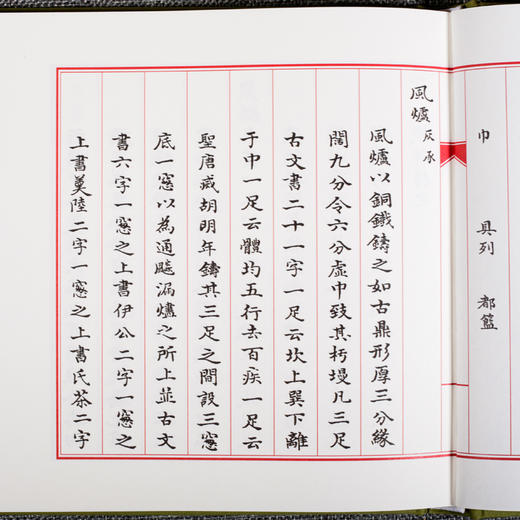 巾
具列
都籃
風爐灰承
風爐以銅鐵鑄之如古鼎形厚三分緣
闊九分令六分虛中致其杇墁凡三足
古文書二十一字一足云坎上巽下離
于中一足云體均五行去百疾一足云
聖唐滅胡明年鑄其三足之間設三窻
底一窻以為通飈漏燼之所上並古文
書六字一窻之上書伊公二字一窻之
上書羹陸二字一窻之上書氏茶二字